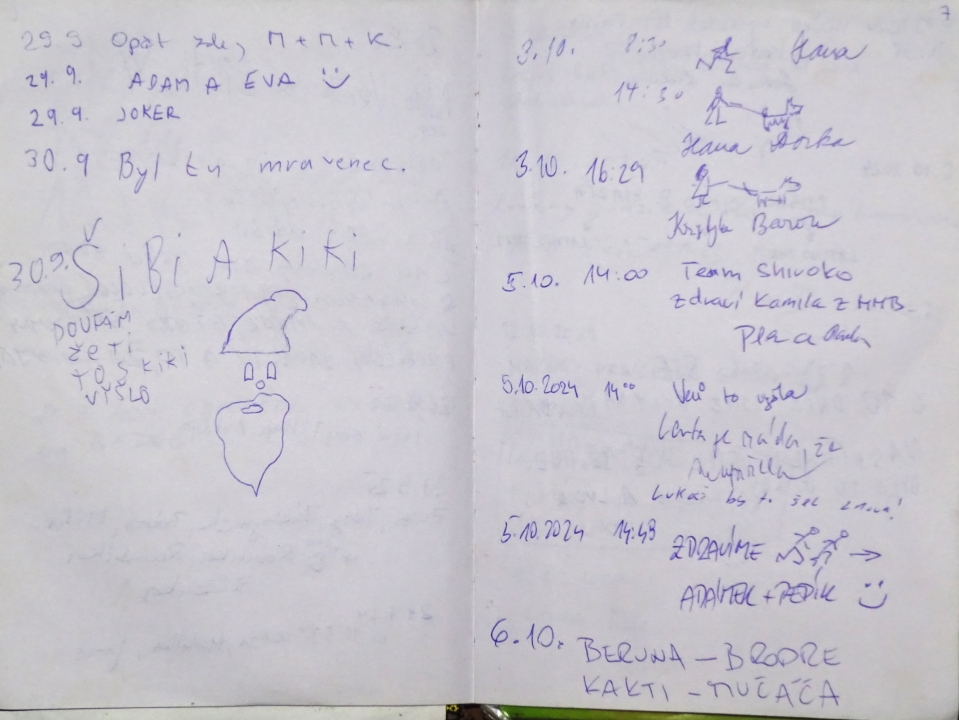 29.9 Opět zde, M+M+K.
29.9. ADAM A EVA
29.9. JOKER
30.9 Byl tu mravenec.
30.9. ŠiBi A KiKi
DOUFÁM
ŽE TI
TO S KIKI
VYŠLO
7
3.10. 8:30 Hana
14:30
Hana Dorka
3.10. 16:29
Baron
5.10. 14:00 Team Shivoko
zdraví Kamila z HHB
Pla a
5.10.2024 14⁰⁰ to vyšla
je ráda, že
Lukáš by to šel znova!
5.10.2024 14:49 ZDRAVÍME →
ADÁMEK +
6.10. BERUNA – BRODRE
KAKTI – MUČÁČA